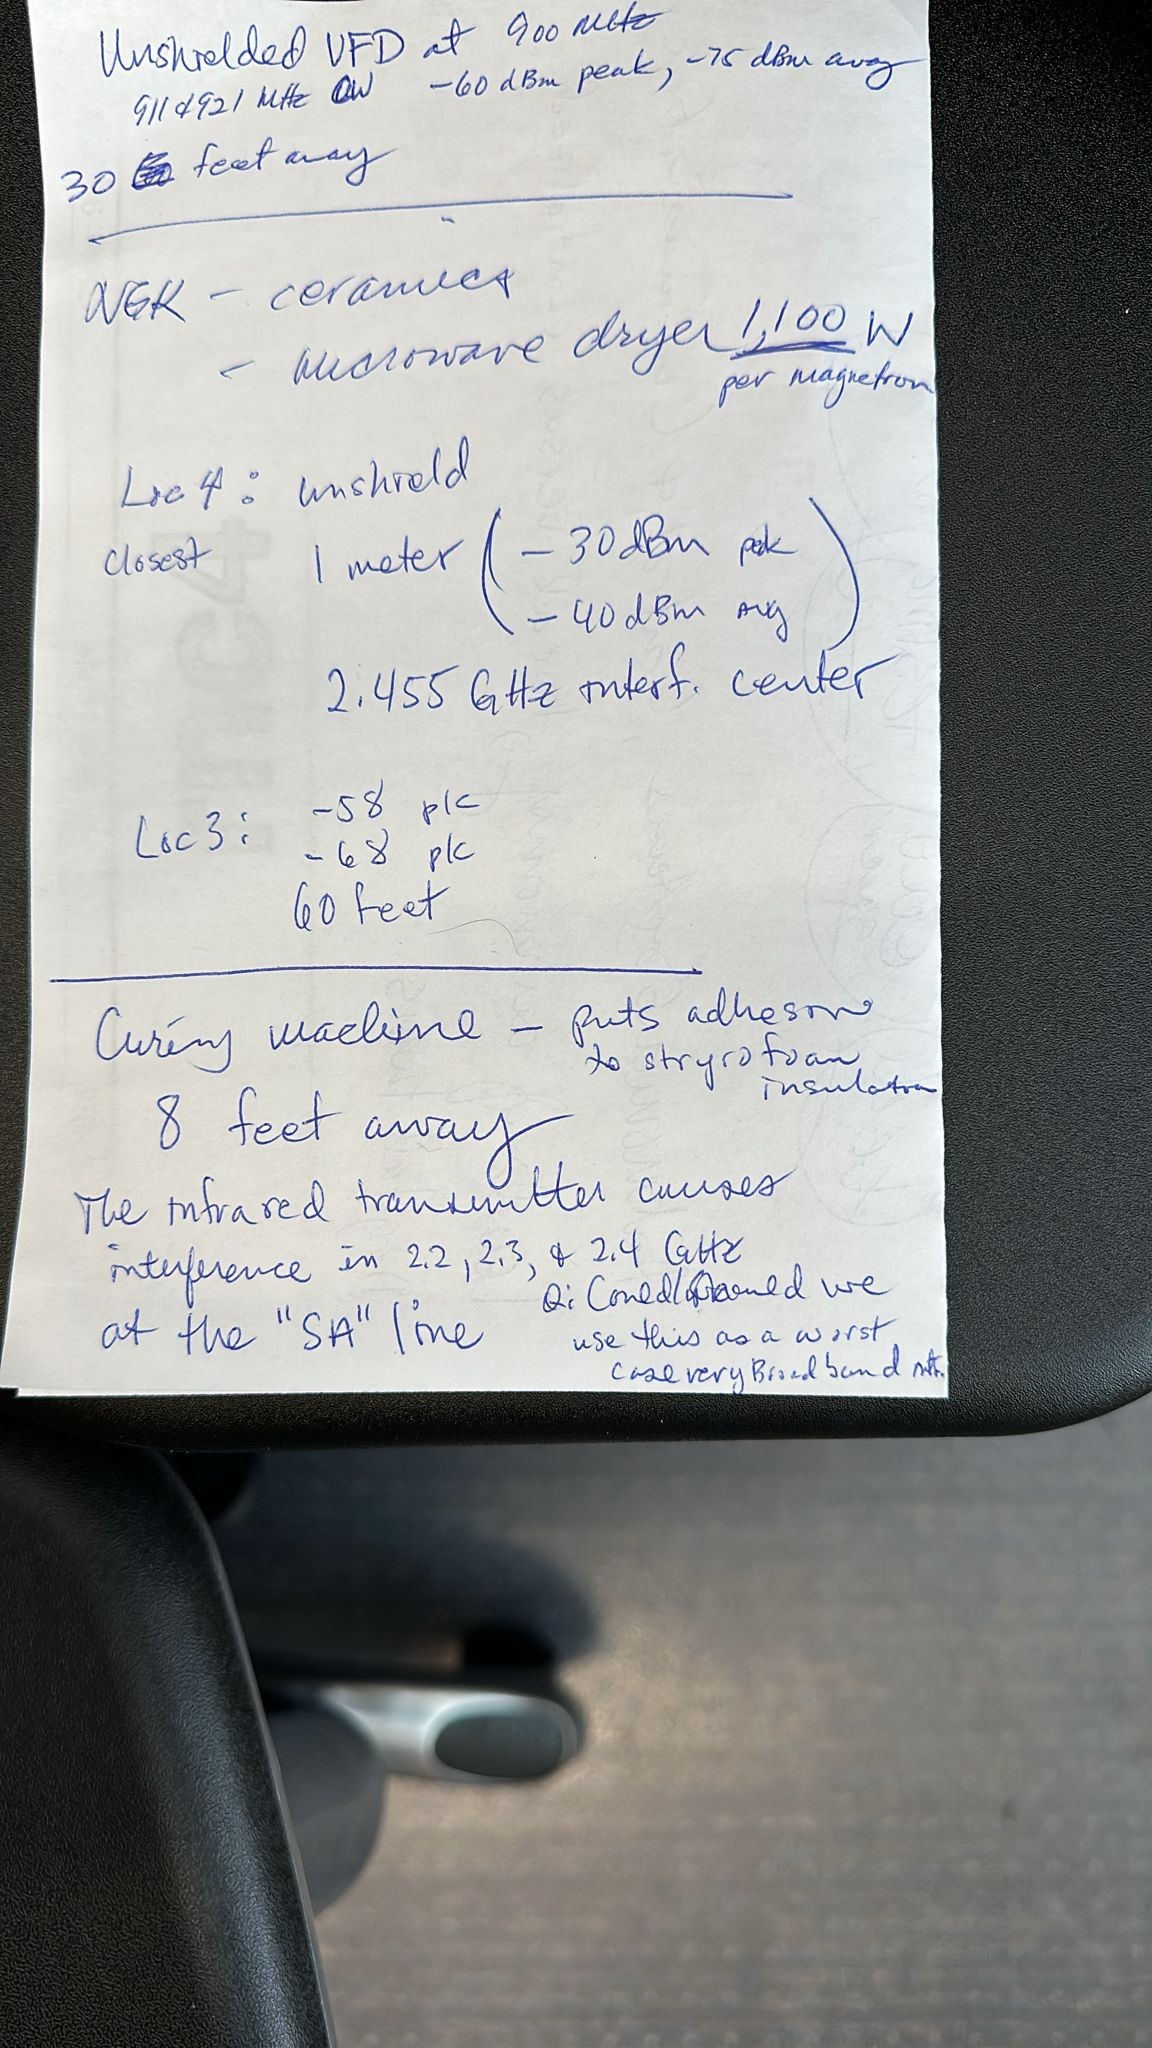 Unshielded VFD at 900 MHz
911 & 921 MHz CW -60 dBm peak, -75 dBm avg
30 feet away
NGK - ceramics
- microwave dryer 1,100 W
per magnetron
Loc 4: unshield
closest 1 meter ( -30 dBm pk
-40 dBm avg )
2.455 GHz interf. center
Loc 3: -58 pk
-68 pk
60 feet
Curing machine - puts adhesion
to stryrofoam
insulation
8 feet away
The infrared transmitter causes
interference in 2.2, 2.3, & 2.4 GHz
at the "SA" line
Q: Could we
use this as a worst
case very Broadband